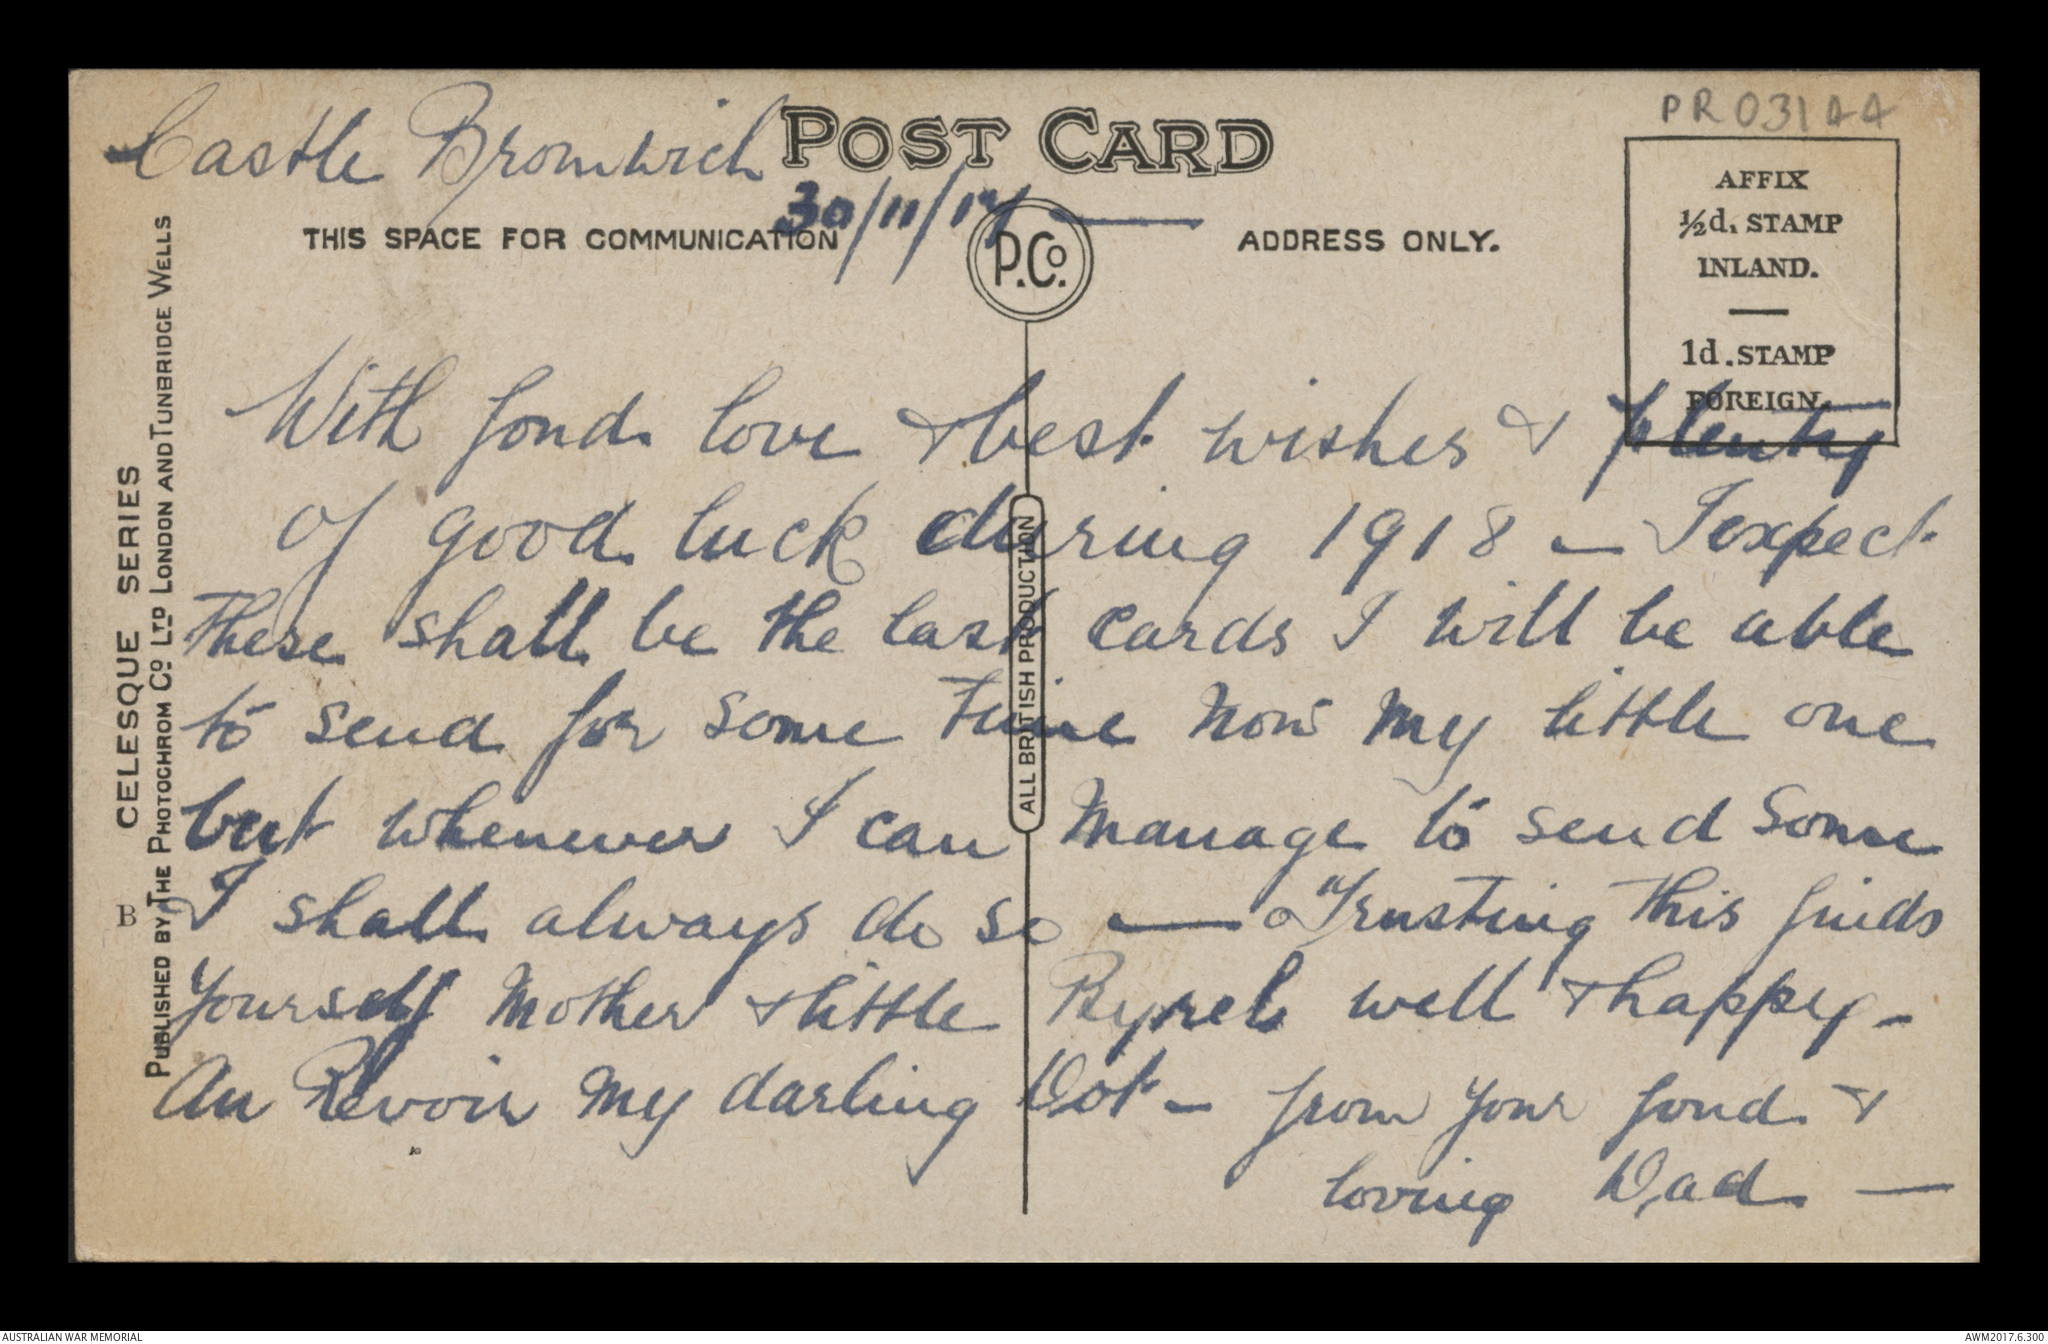 PR03144
Castle Bromwich
POST CARD
30/11/17 —
THIS SPACE FOR COMMUNICATION
ADDRESS ONLY.
P.Co.
AFFIX
½d. STAMP
INLAND.
1d. STAMP
FOREIGN.
With fond love & best wishes & plenty
of good luck during 1918 — I expect
these shall be the last cards I will be able
to send for some time now my little one
but whenever I can manage to send some
I shall always do so — Trusting this finds
yourself Mother & little well & happy -
Au Revoir my darling Dot - from your fond &
loving Dad —
ALL BRITISH PRODUCTION
CELESQUE SERIES
PUBLISHED BY THE PHOTOCHROM Co LTD LONDON AND TUNBRIDGE WELLS
B
AUSTRALIAN WAR MEMORIAL
AWM2017.6.300